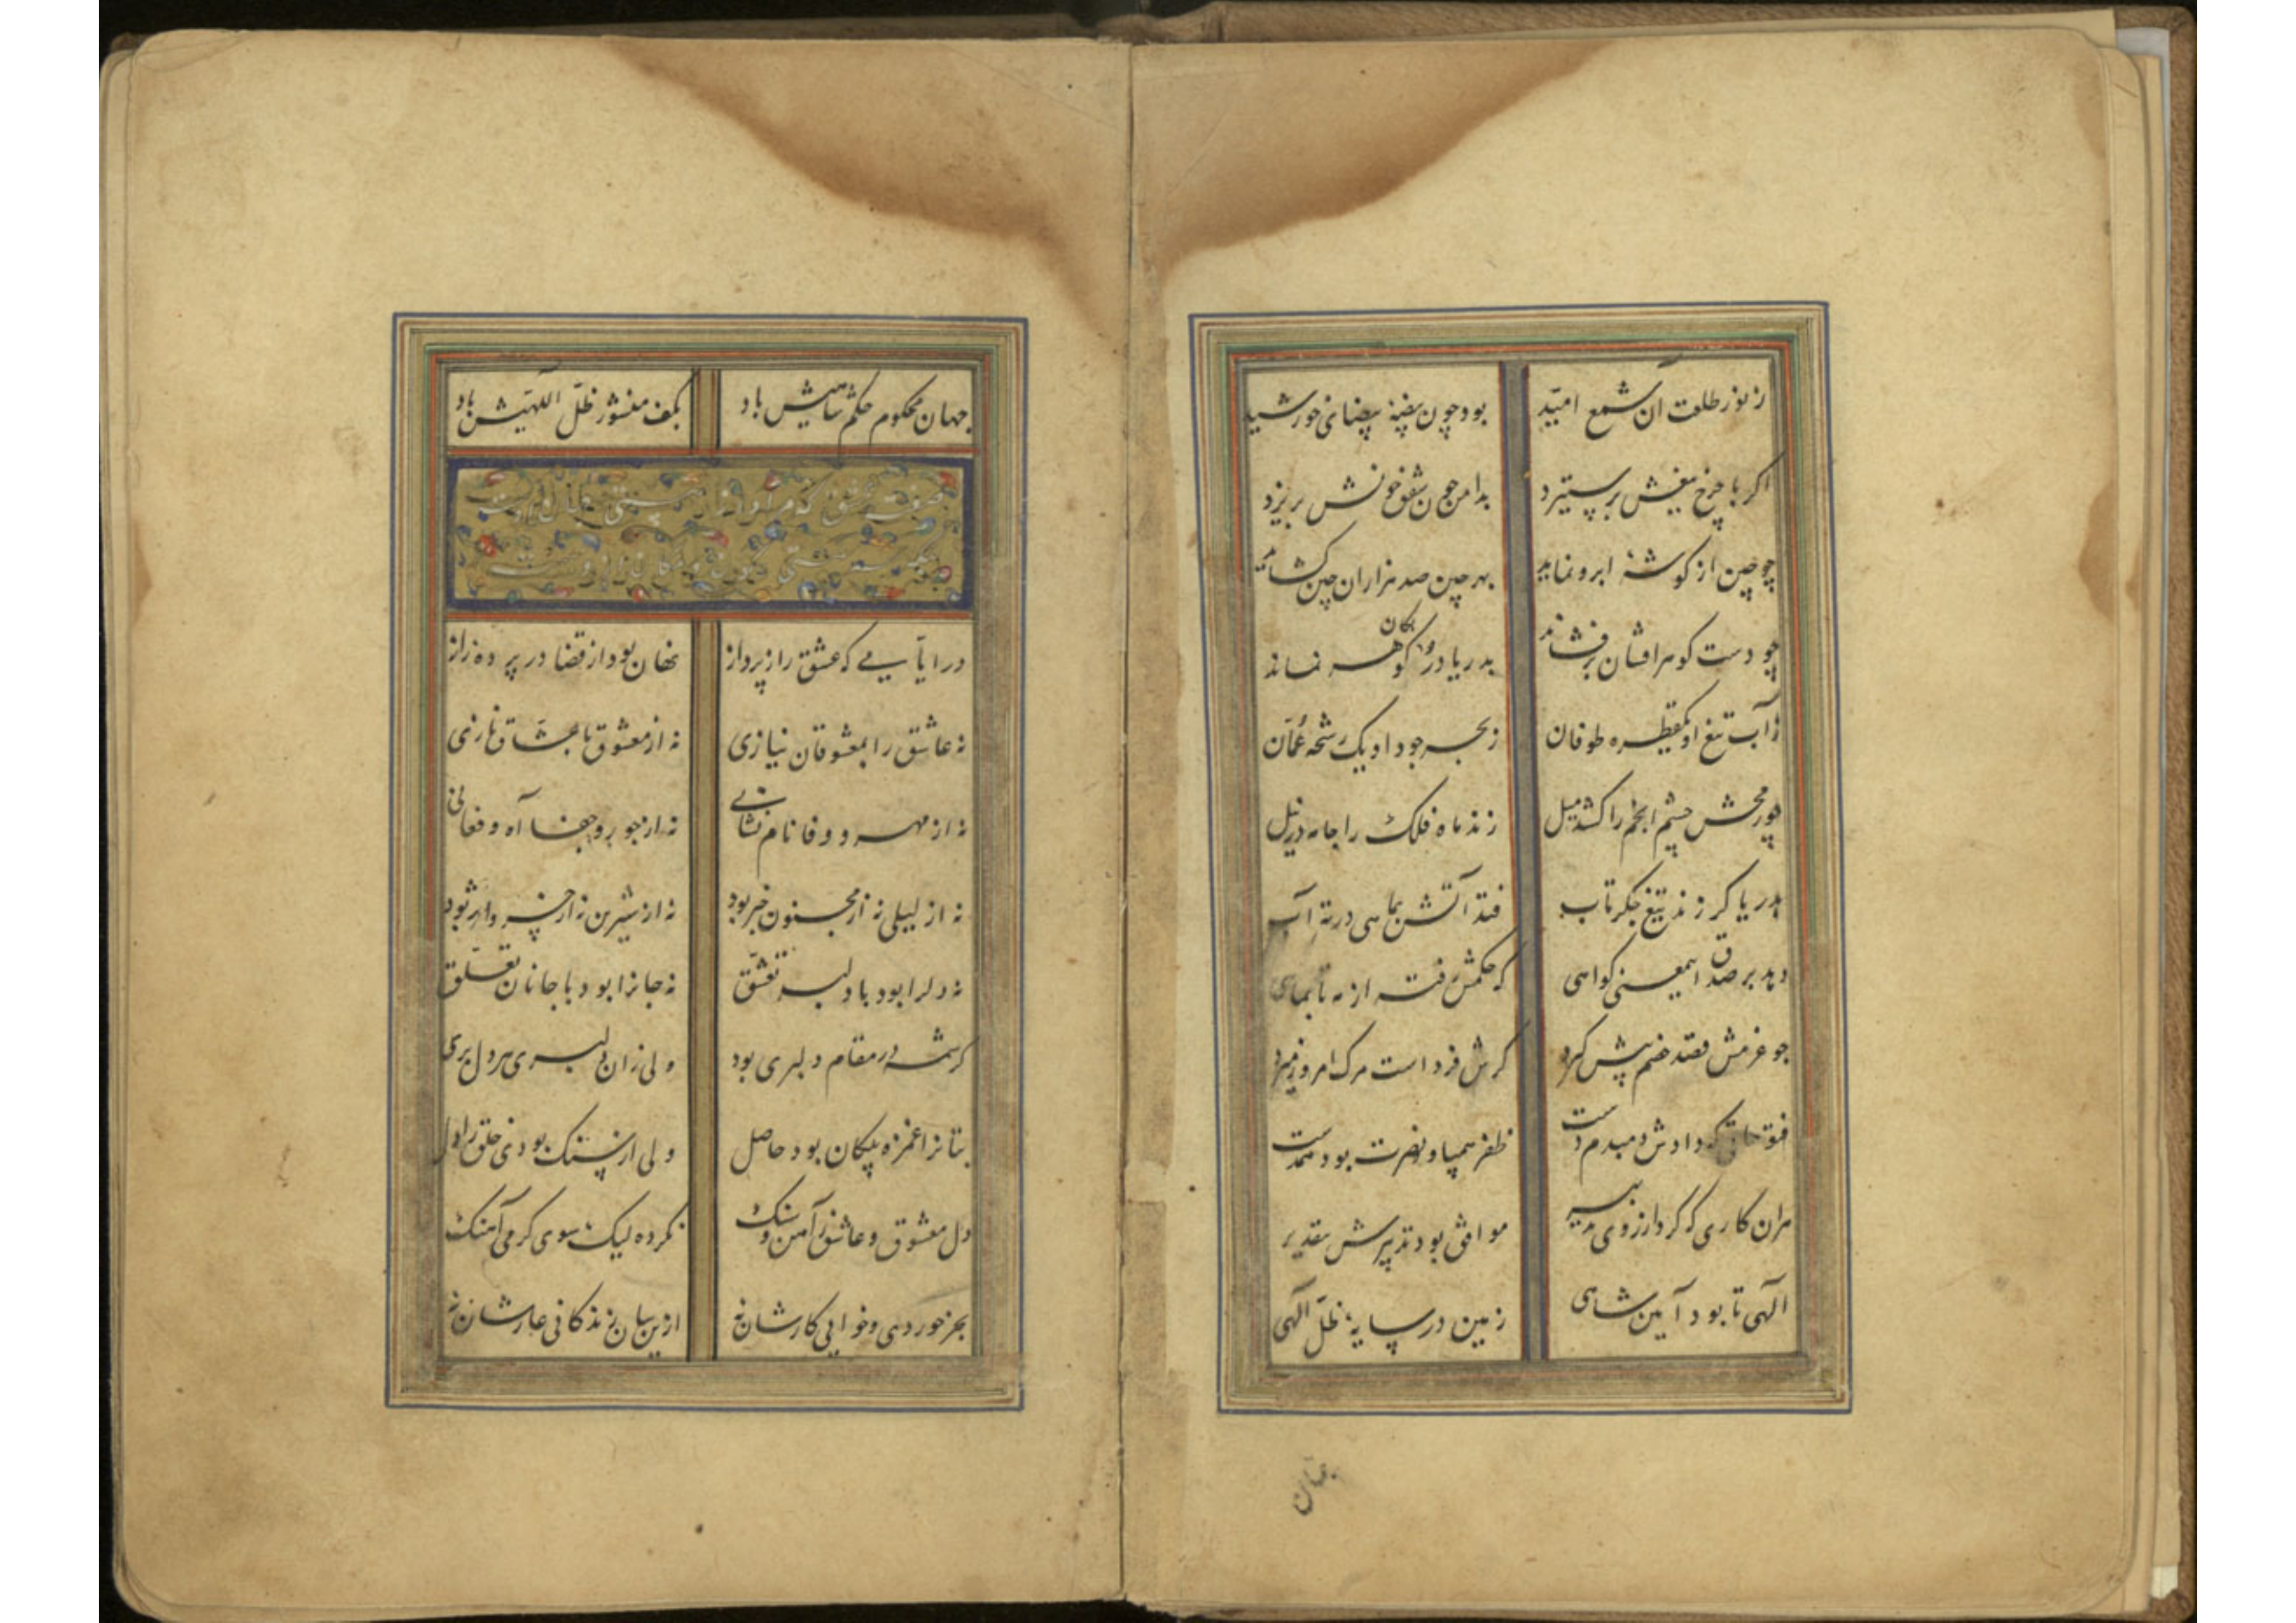 ز نور طلعت آن شمع امید بود چون بیضه بیضای خورشید
اکر با چرخ تیغش بر ستیزد بدامن چون شفق خونش بریزد
چو چین از کوشهٔ ابرو نماید بهر چین صد هزاران چین کشاید
چو دست کوهر افشان برفشاند بدریا در و کان کوهر نماند
ز آب تیغ او یکقطره طوفان ز بحر جود او یک رشحه عمّان
چو رمحش چشم انجم را کشد میل زند ماه فلک را جامه در نیل
بدریا کر زند تیغ جکرتاب فتد آتش بماهی در ته آب
دهد بر صدق اینمعنی کواهی که حکمش رفته از مه تا بماهی
چو عزمش قصد خصم پیش کیرد کرش فرداست مرک امروز میرد
دادش دمبدم دست ظفر همپا و نصرت بود همدست
هران کاری که کرد از روی تدبیر موافق بود تدبیرش بتقدیر
آلهی تا بود آیین شاهی زمین در سایهٔ ظلّ آلهی
جهان
جهان محکوم حکم شاهیش باد بکف منشور ظلّ اللهیش باد
در ایّامی که عشق راز پرداز نهان بود از قضا در پرده راز
نه عاشق را بمعشوقان نیازی نه از معشوق با عشّاق نازی
نه از مهر و وفا نام نشانی نه از جور و جفا آه و فغانی
نه از لیلی نه از مجنون خبر بود نه از شیرین نه از خسرو اثر بود
نه دلرا بود با دلبر تعشّق نه جانرا بود با جانان تعلّق
کرشمه در مقام دلبری بود ولی زان دلبری هر دل بری
بتانرا غمزه پیکان بود حاصل ولی از سنک بودی خلق را دل
دل معشوق و عاشق آهن و سنک نکرده لیک سوی کرمی آهنک
بجز خوردی و خوابی کارشان نه ازین سان زندکانی عارشان نه